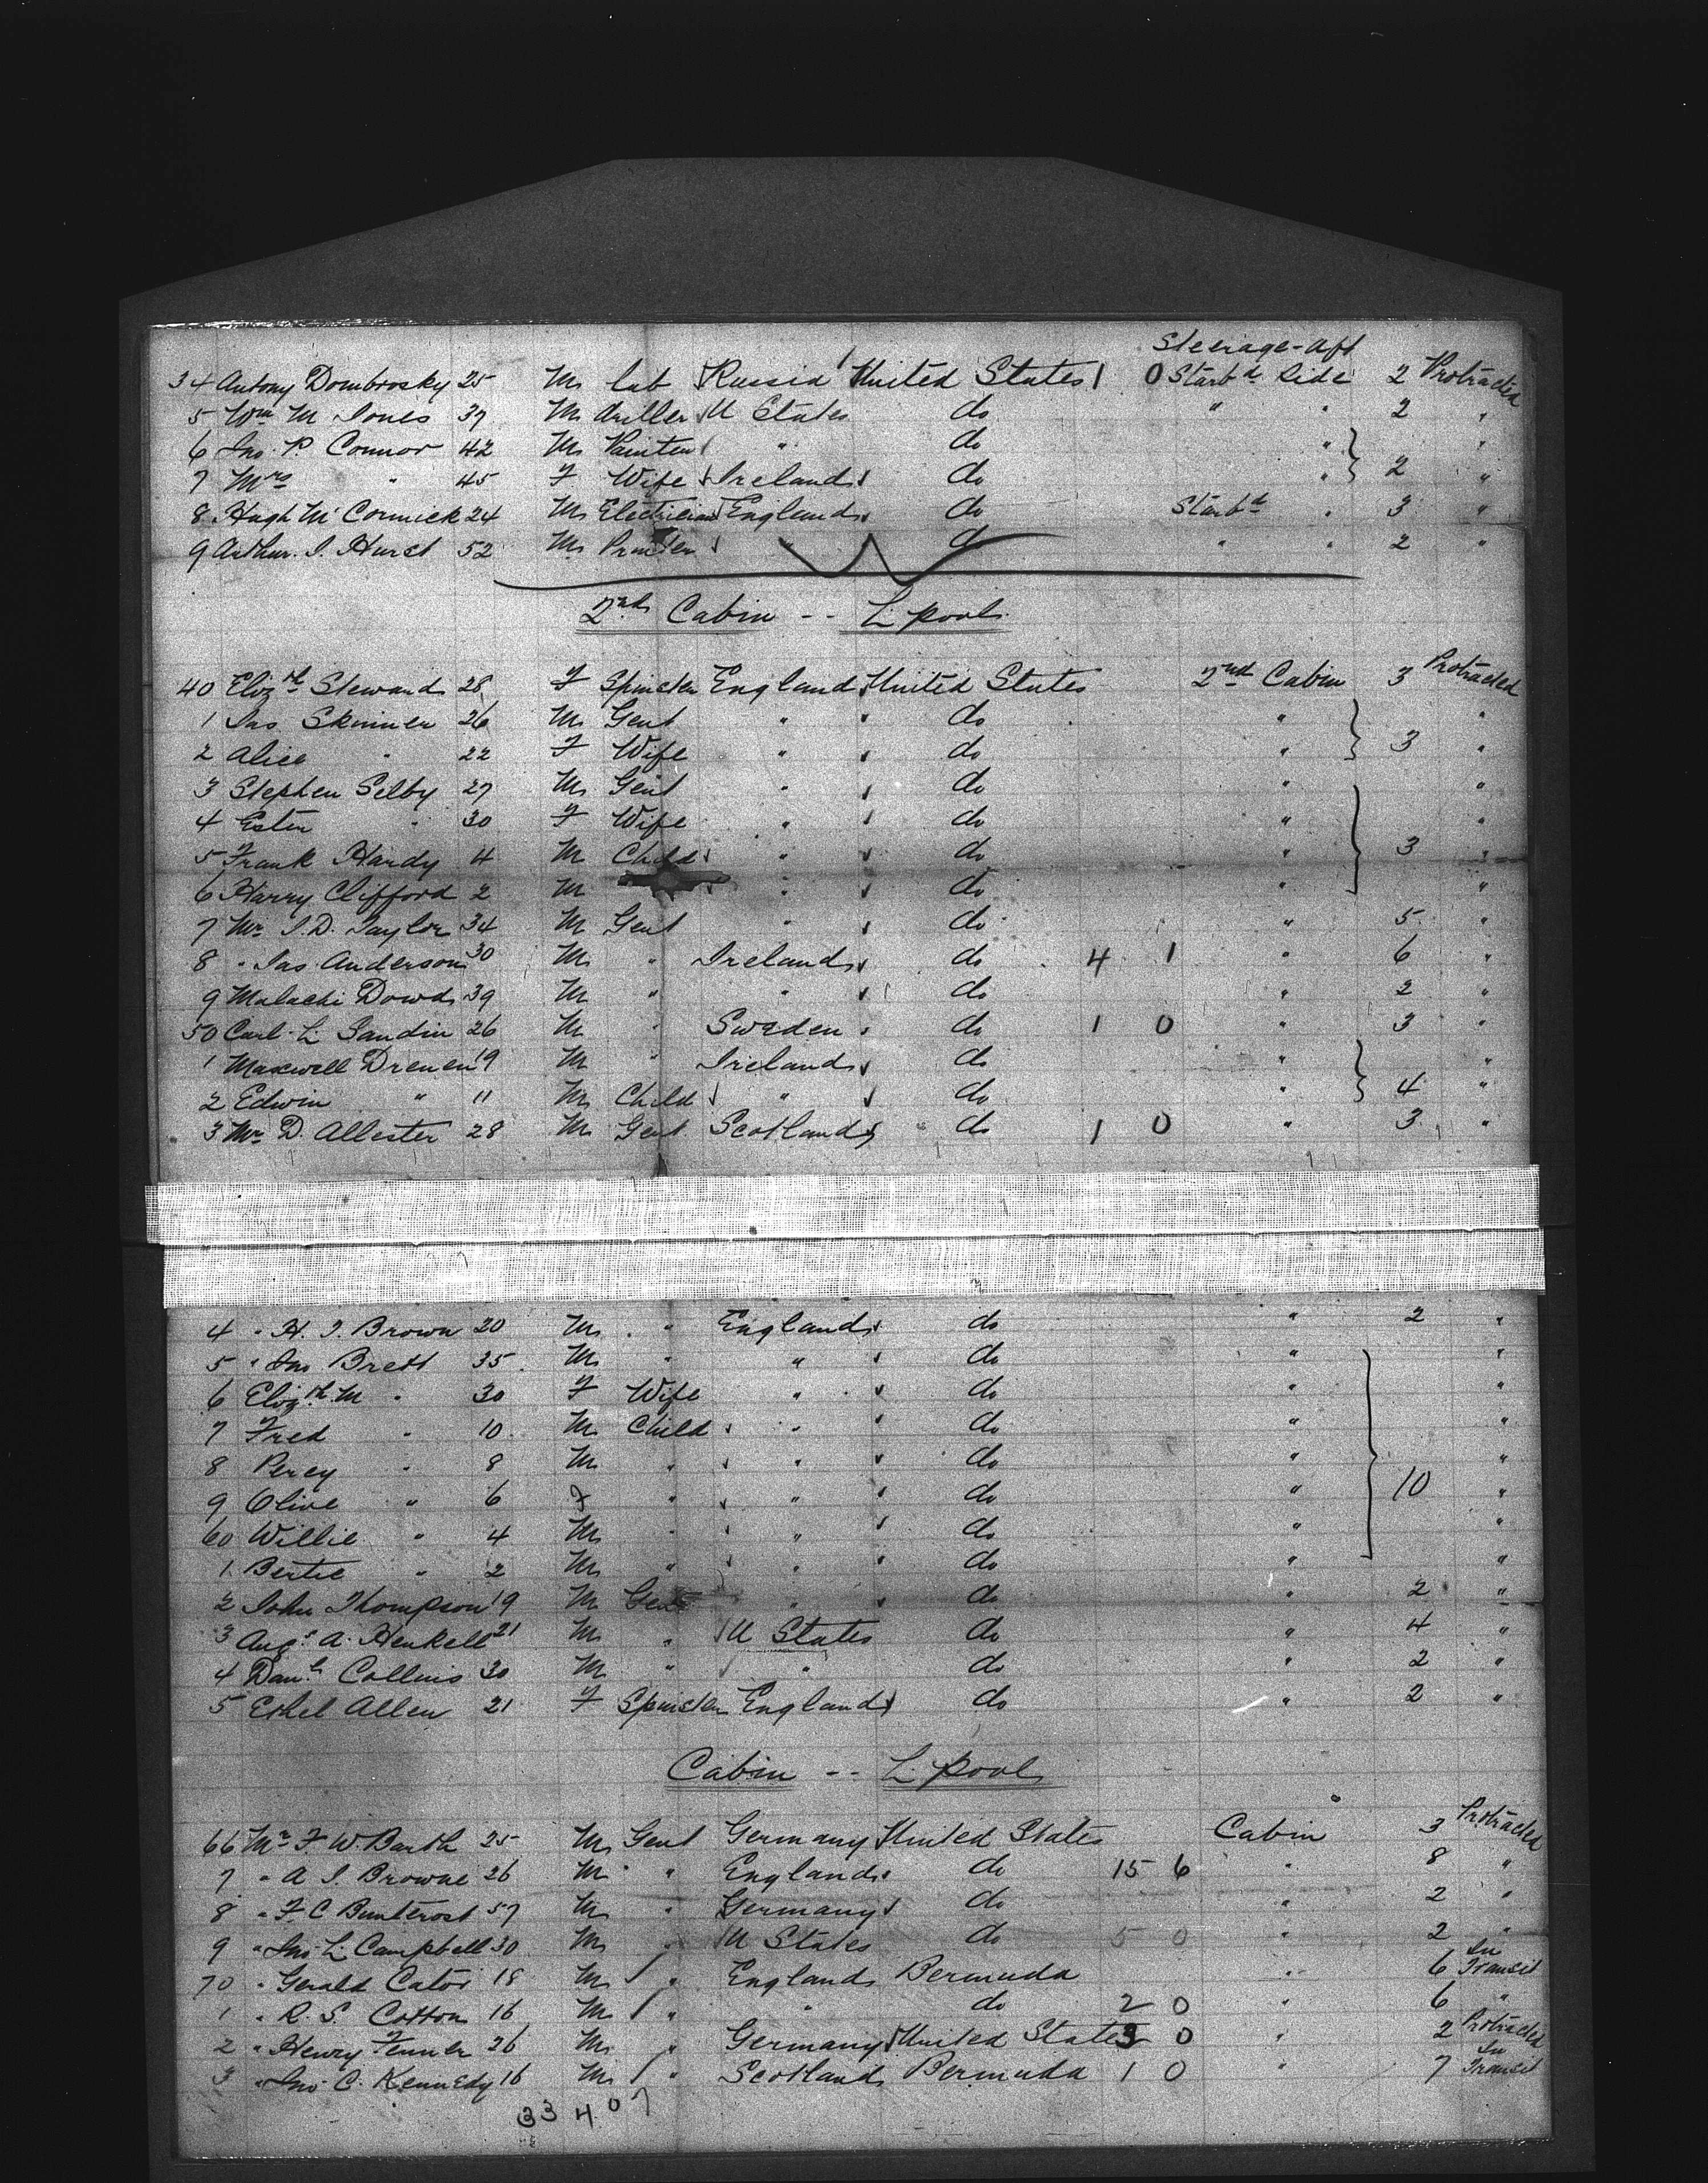 Steerage-Aft
34 Antony Dombrosky 25 M lab Russia United States 1 0 Starbd Side 2 Protracted
5 Wm M Jones 37 M driller U States do " " 2 "
6 Jno. P Connor 42 M Painter " do " "
7 Mrs " 45 F Wife Ireland do " 2 "
8 Hugh McCormick 24 M Electrician England do Starbd " 3 "
9 Arthur. J. Hurst 52 M Printer " do " " 2 "
2nd Cabin -- L'pool
40 Elizth Steward 28 F Spinster England United States 2nd Cabin 3 Protracted
1 Jas Skinner 26 M Gent " " do " "
2 Alice " 22 F Wife " do " 3 "
3 Stephen Selby 27 M Gent " do " "
4 Ester " 30 F Wife " do " "
5 Frank Hardy 4 M Child " do " 3 "
6 Harry Clifford 2 M " do " "
7 Mr J. D. Taylor 34 M Gent " do " 5 "
8 " Jas Anderson 30 M " Ireland do 4 1 " 6 "
9 Malachi Dowd 39 M " " do " 2 "
50 Carl L Sandin 26 M " Sweden do 1 0 " 3 "
1 Maxwell Drenen 19 M " Ireland do " "
2 Edwin " 11 M Child " do " 4 "
3 Mr D. Allester 28 M Gent Scotland do 1 0 " 3 "
4 " H. J. Brown 20 M " England do " 2 "
5 " Jno Brett 35 M " " do " "
6 Elizth M " 30 F Wife " do " "
7 Fred " 10 M Child " do " "
8 Percy " 8 M " " do " "
9 Olive " 6 F " " do " 10 "
60 Willie " 4 M " " do " "
1 Bertie " 2 M " " do " "
2 John Thompson 19 M Gent " do " 2 "
3 Augt A. Henkell 21 M " U States do " 4 "
4 Danl Collins 30 M " " do " 2 "
5 Ethel Allen 21 F Spinster England do " 2 "
Cabin -- L'pool
66 Mr F. W. Barth 25 M Gent Germany United States Cabin 3 Protracted
7 " A J. Browne 26 M " England do 15 6 " 8 "
8 " F. C Bunterost 57 M " Germany do " 2 "
9 " Jno L. Campbell 30 M " U States do 5 0 " 2 "
70 " Gerald Cator 18 M " England Bermuda " 6 In Transit
1 " R. S. Cotton 16 M " " do 2 0 " 6 "
2 " Henry Fenner 26 M " Germany United States 3 0 " 2 Protracted
3 " Jno C. Kennedy 16 M " Scotland Bermuda 1 0 " 7 In Transit
33 407